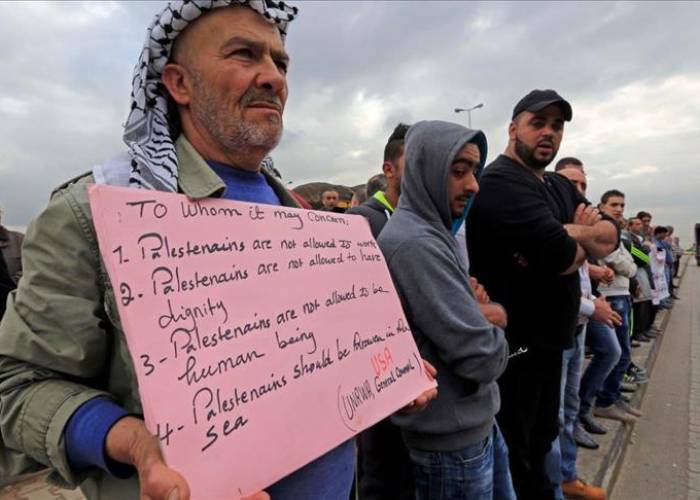 To Whom it may Concern:
1. Palestenains are not allowed to work
2. Palestenains are not allowed to have
dignity
3 - Palestenains are not allowed to be
human being
4 - Palestenains should be in the
sea
(UNRWA, USA
General Council)